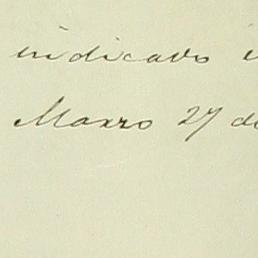 indicado
Marzo 27 de